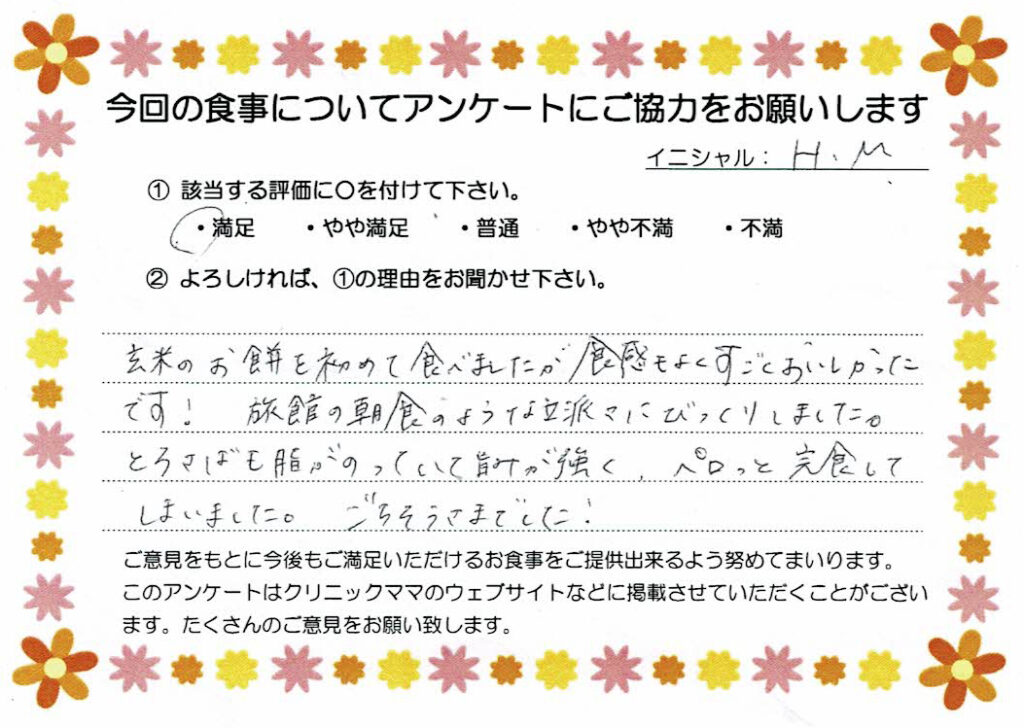 今回の食事についてアンケートにご協力をお願いします
イニシャル： H.M
① 該当する評価に〇を付けて下さい。
・満足 ・やや満足 ・普通 ・やや不満 ・不満
② よろしければ、①の理由をお聞かせ下さい。
玄米のお餅を初めて食べましたが食感もよくすごくおいしかった
です! 旅館の朝食のような立派さにびっくりしました。
とろさばも脂がのっていて旨みが強く、ペロっと完食して
しまいました。 ごちそうさまでした!
ご意見をもとに今後もご満足いただけるお食事をご提供出来るよう努めてまいります。
このアンケートはクリニックママのウェブサイトなどに掲載させていただくことがござい
ます。たくさんのご意見をお願い致します。